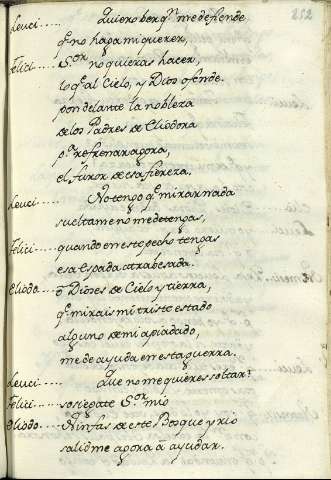 252
Leuci..... Quiero ber qn me defiende
q̃ no haga mi querer,
Felici.... Sor no quieras hacer,
lo q̃ al Cielo, y Dios ofende.
pon delante la nobleza
de los Padres de Eliodora
pa refrenar agora
el furor de esa fiereza.
Leuci..... No tengo q̃ mirar nada
sueltame no me detengas,
Felici.... quando en este pecho tengas
esa Espada atrabesada.
Eliodo.... ō Dioses de Cielo y tierra,
q̃ mirais mi triste estado
alguno de mi apiadado,
me de ayuda en esta guerra.
Leuci..... Que no me quieres soltar?
Felici..... sosiegate Sor mio
Eliodo.... Ninfas de este Bosque y rio
salidme agora ā ayudar.